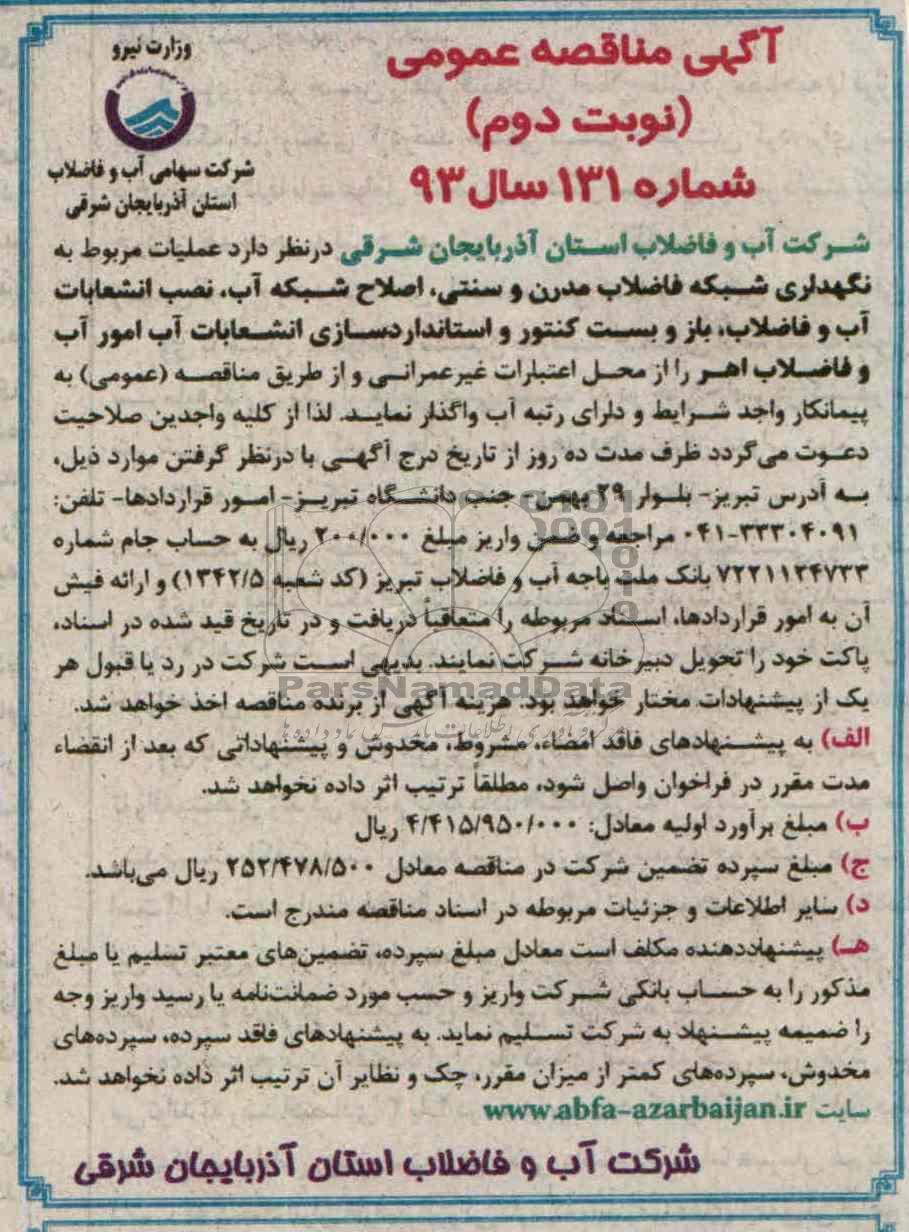 آگهی مناقصه عمومی
(نوبت دوم)
شماره ۱۳۱ سال ۹۳
وزارت نیرو
شرکت سهامی آب و فاضلاب
استان آذربایجان شرقی
شرکت آب و فاضلاب استان آذربایجان شرقی درنظر دارد عملیات مربوط به
نگهداری شبکه فاضلاب مدرن و سنتی، اصلاح شبکه آب، نصب انشعابات
آب و فاضلاب، باز و بست کنتور و استانداردسازی انشعابات آب امور آب
و فاضلاب اهر را از محل اعتبارات غیرعمرانی و از طریق مناقصه (عمومی) به
پیمانکار واجد شرایط و دارای رتبه آب واگذار نماید. لذا از کلیه واجدین صلاحیت
دعوت می‌گردد ظرف مدت ده روز از تاریخ درج آگهی با درنظر گرفتن موارد ذیل،
به آدرس تبریز- بلوار ۲۹ بهمن- جنب دانشگاه تبریز- امور قراردادها- تلفن:
۰۴۱-۳۳۳۰۴۰۹۱ مراجعه و ضمن واریز مبلغ ۲۰۰/۰۰۰ ریال به حساب جام شماره
۷۲۲۱۱۲۴۷۳۳ بانک ملت باجه آب و فاضلاب تبریز (کد شعبه ۱۳۴۲/۵) و ارائه فیش
آن به امور قراردادها، اسناد مربوطه را متعاقباً دریافت و در تاریخ قید شده در اسناد،
پاکت خود را تحویل دبیرخانه شرکت نمایند. بدیهی است شرکت در رد یا قبول هر
یک از پیشنهادات مختار خواهد بود. هزینه آگهی از برنده مناقصه اخذ خواهد شد.
ParsNamadData
الف) به پیشنهادهای فاقد امضاء، مشروط، مخدوش و پیشنهاداتی که بعد از انقضاء
مدت مقرر در فراخوان واصل شود، مطلقاً ترتیب اثر داده نخواهد شد.
ب) مبلغ برآورد اولیه معادل: ۴/۴۱۵/۹۵۰/۰۰۰ ریال
ج) مبلغ سپرده تضمین شرکت در مناقصه معادل ۲۵۲/۴۷۸/۵۰۰ ریال می‌باشد.
د) سایر اطلاعات و جزئیات مربوطه در اسناد مناقصه مندرج است.
هـ) پیشنهاددهنده مکلف است معادل مبلغ سپرده، تضمین‌های معتبر تسلیم یا مبلغ
مذکور را به حساب بانکی شرکت واریز و حسب مورد ضمانت‌نامه یا رسید واریز وجه
را ضمیمه پیشنهاد به شرکت تسلیم نماید. به پیشنهادهای فاقد سپرده، سپرده‌های
مخدوش، سپرده‌های کمتر از میزان مقرر، چک و نظایر آن ترتیب اثر داده نخواهد شد.
سایت www.abfa-azarbaijan.ir
شرکت آب و فاضلاب استان آذربایجان شرقی